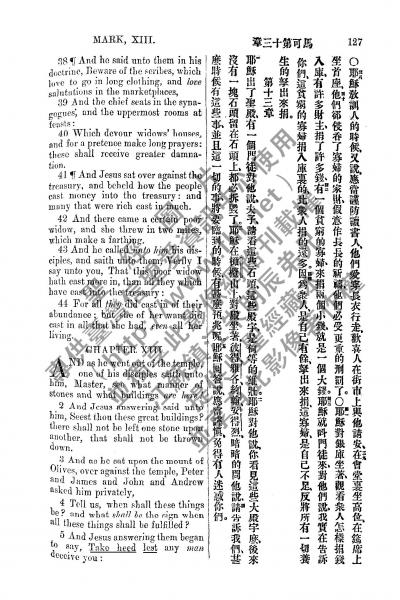 MARK, XIII.
章三十第可馬
127
38 ¶ And he said unto them in his
doctrine, Beware of the scribes, which
love to go in long clothing, and love
salutations in the marketplaces,
39 And the chief seats in the syna-
gogues, and the uppermost rooms at
feasts:
40 Which devour widows' houses,
and for a pretence make long prayers:
these shall receive greater damna-
tion.
41 ¶ And Jesus sat over against the
treasury, and beheld how the people
cast money into the treasury: and
many that were rich cast in much.
42 And there came a certain poor
widow, and she threw in two mites,
which make a farthing.
43 And he called unto him his dis-
ciples, and saith unto them, Verily I
say unto you, That this poor widow
hath cast more in, than all they which
have cast into the treasury:
44 For all they did cast in of their
abundance; but she of her want did
cast in all that she had, even all her
living.
CHAPTER XIII.
AND as he went out of the temple,
one of his disciples saith unto
him, Master, see what manner of
stones and what buildings are here!
2 And Jesus answering said unto
him, Seest thou these great buildings?
there shall not be left one stone upon
another, that shall not be thrown
down.
3 And as he sat upon the mount of
Olives, over against the temple, Peter
and James and John and Andrew
asked him privately,
4 Tell us, when shall these things
be? and what shall be the sign when
all these things shall be fulfilled?
5 And Jesus answering them began
to say, Take heed lest any man
deceive you:
○耶穌敎訓人的時候又說應當謹防讀書人他們愛穿長衣行走歡喜人在街市上與他請安在會堂裏坐高位在筵席上
坐首座他們都侵吞了寡婦的家財假意作長長的祈禱他們必受更重的刑罰了○耶穌對銀庫坐着觀看衆人怎樣捐錢
入庫有許多財主捐了許多錢有一個貧窮的寡婦來捐兩個小錢就是一個大錢耶穌就叫門徒來對他們說我實在告訴
你們這貧窮的寡婦捐入庫裏的比衆人捐的還多因爲衆人是自己有餘拏出來捐這寡婦是自己不足反將所有一切養
生的拏出來捐
第十三章
耶穌出了聖殿有一個門徒對他說夫子請看這些石頭這些殿宇是何等的壯麗耶穌對他說你看見這些大殿宇麽後來
沒有一塊石頭留在石頭上都必拆毀了耶穌在橄欖山上對殿坐着彼得雅各約翰安得烈暗暗的問他說請告訴我們甚
麽時候有這些事並且這一切的事將要臨到的時候有甚麽預兆呢耶穌囘答說應當謹愼免得有人迷惑你們